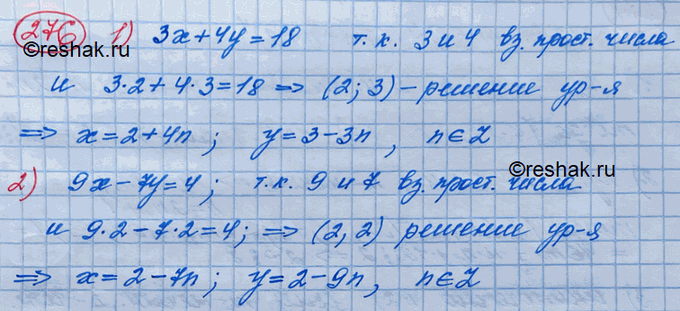 276 1) 3x+4y=18 т.к. 3 и 4 вз. прост. числа
©reshak.ru
и 3·2+4·3=18 ⇒ (2; 3) – решение ур-я
⇒ x=2+4n; y=3-3n, n∈Z
2) 9x-7y=4; т.к. 9 и 7 вз. прост. числа
©reshak.ru
и 9·2-7·2=4; ⇒ (2, 2) решение ур-я
⇒ x=2-7n; y=2-9n, n∈Z